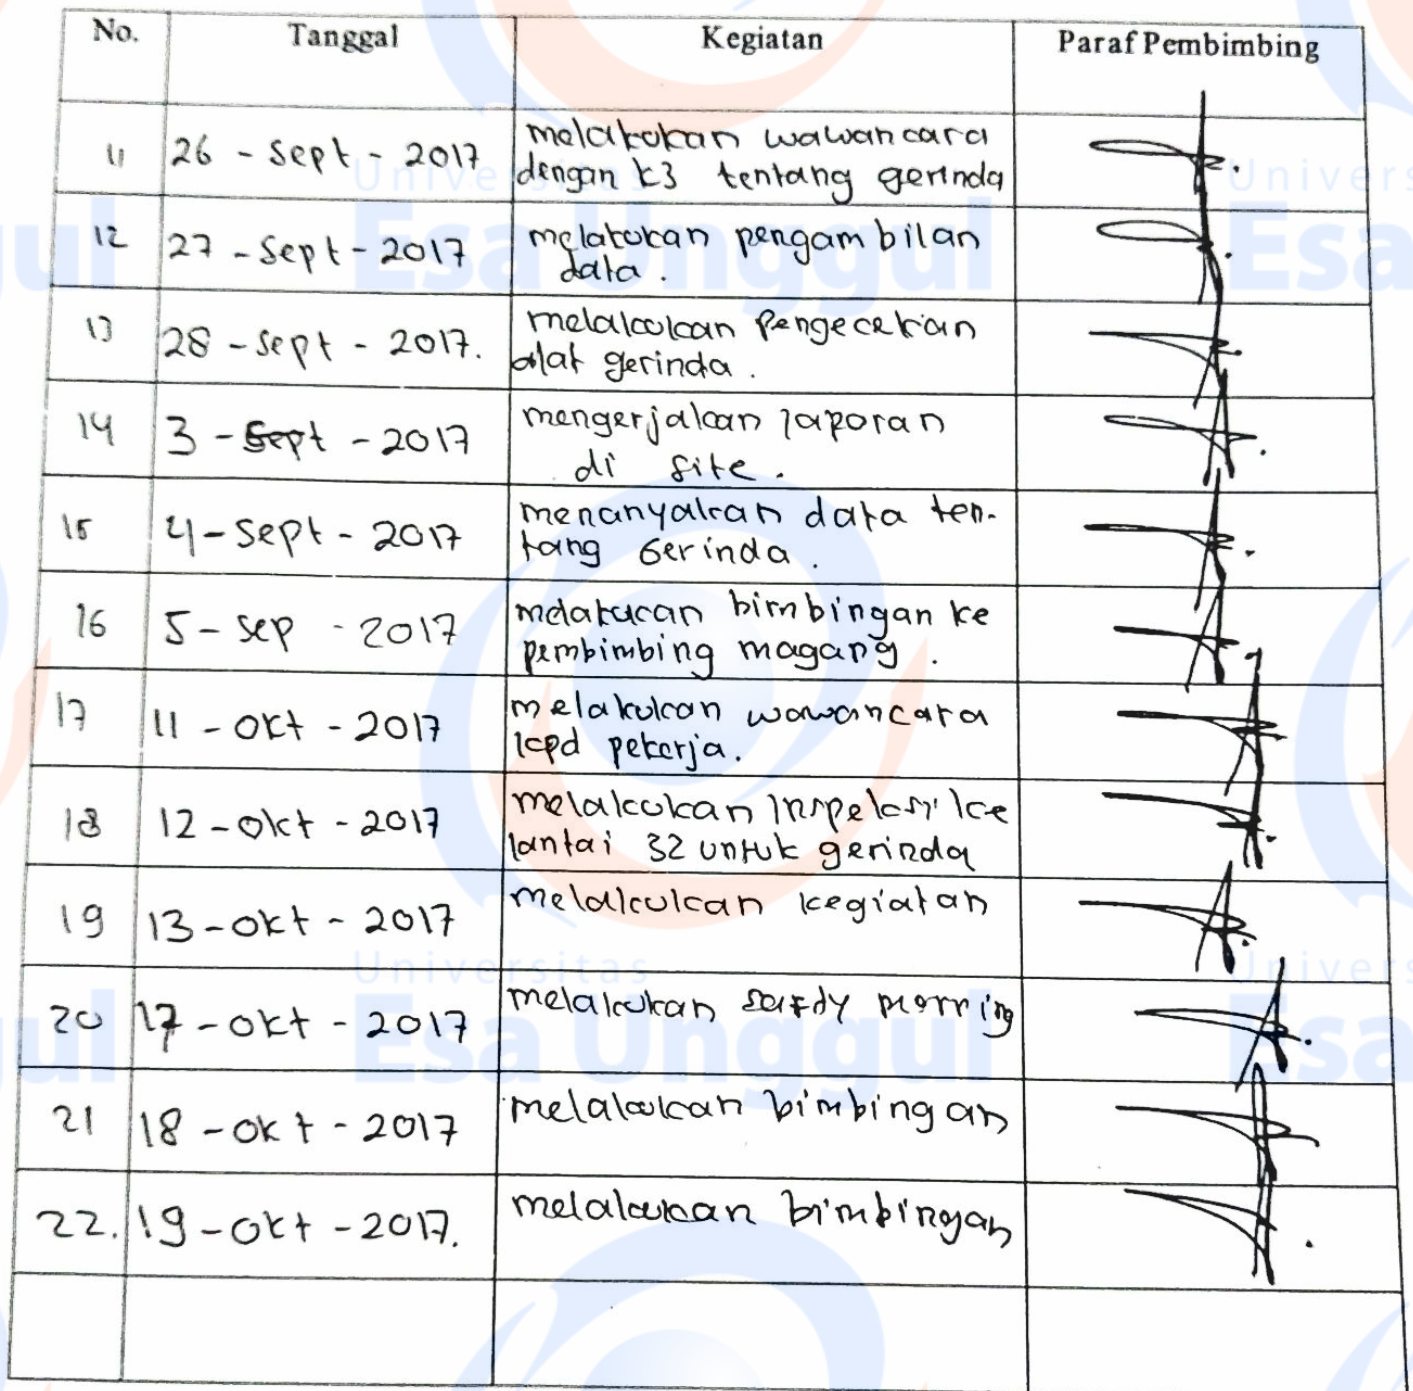 No. Tanggal Kegiatan Paraf Pembimbing
11 26 - Sept - 2017 melakukan wawancara
dengan K3 tentang gerinda
12 27 - Sept - 2017 melakukan pengambilan
data.
13 28 - Sept - 2017. melakukan Pengecekan
alat gerinda.
14 3 - Sept - 2017 mengerjakan laporan
di site.
15 4 - Sept - 2017 menanyakan data ten-
tang Gerinda.
16 5 - Sep - 2017 melakukan bimbingan ke
pembimbing magang.
17 11 - Okt - 2017 melakukan wawancara
kpd pekerja.
18 12 - Okt - 2017 melakukan Inspeksi ke
lantai 32 untuk gerinda
19 13 - Okt - 2017 melakukan kegiatan
20 17 - Okt - 2017 melakukan morning
21 18 - Okt - 2017 melakukan bimbingan
22. 19 - Okt - 2017. melakukan bimbingan
Universitas
Esa Unggul
Universitas
Esa Unggul